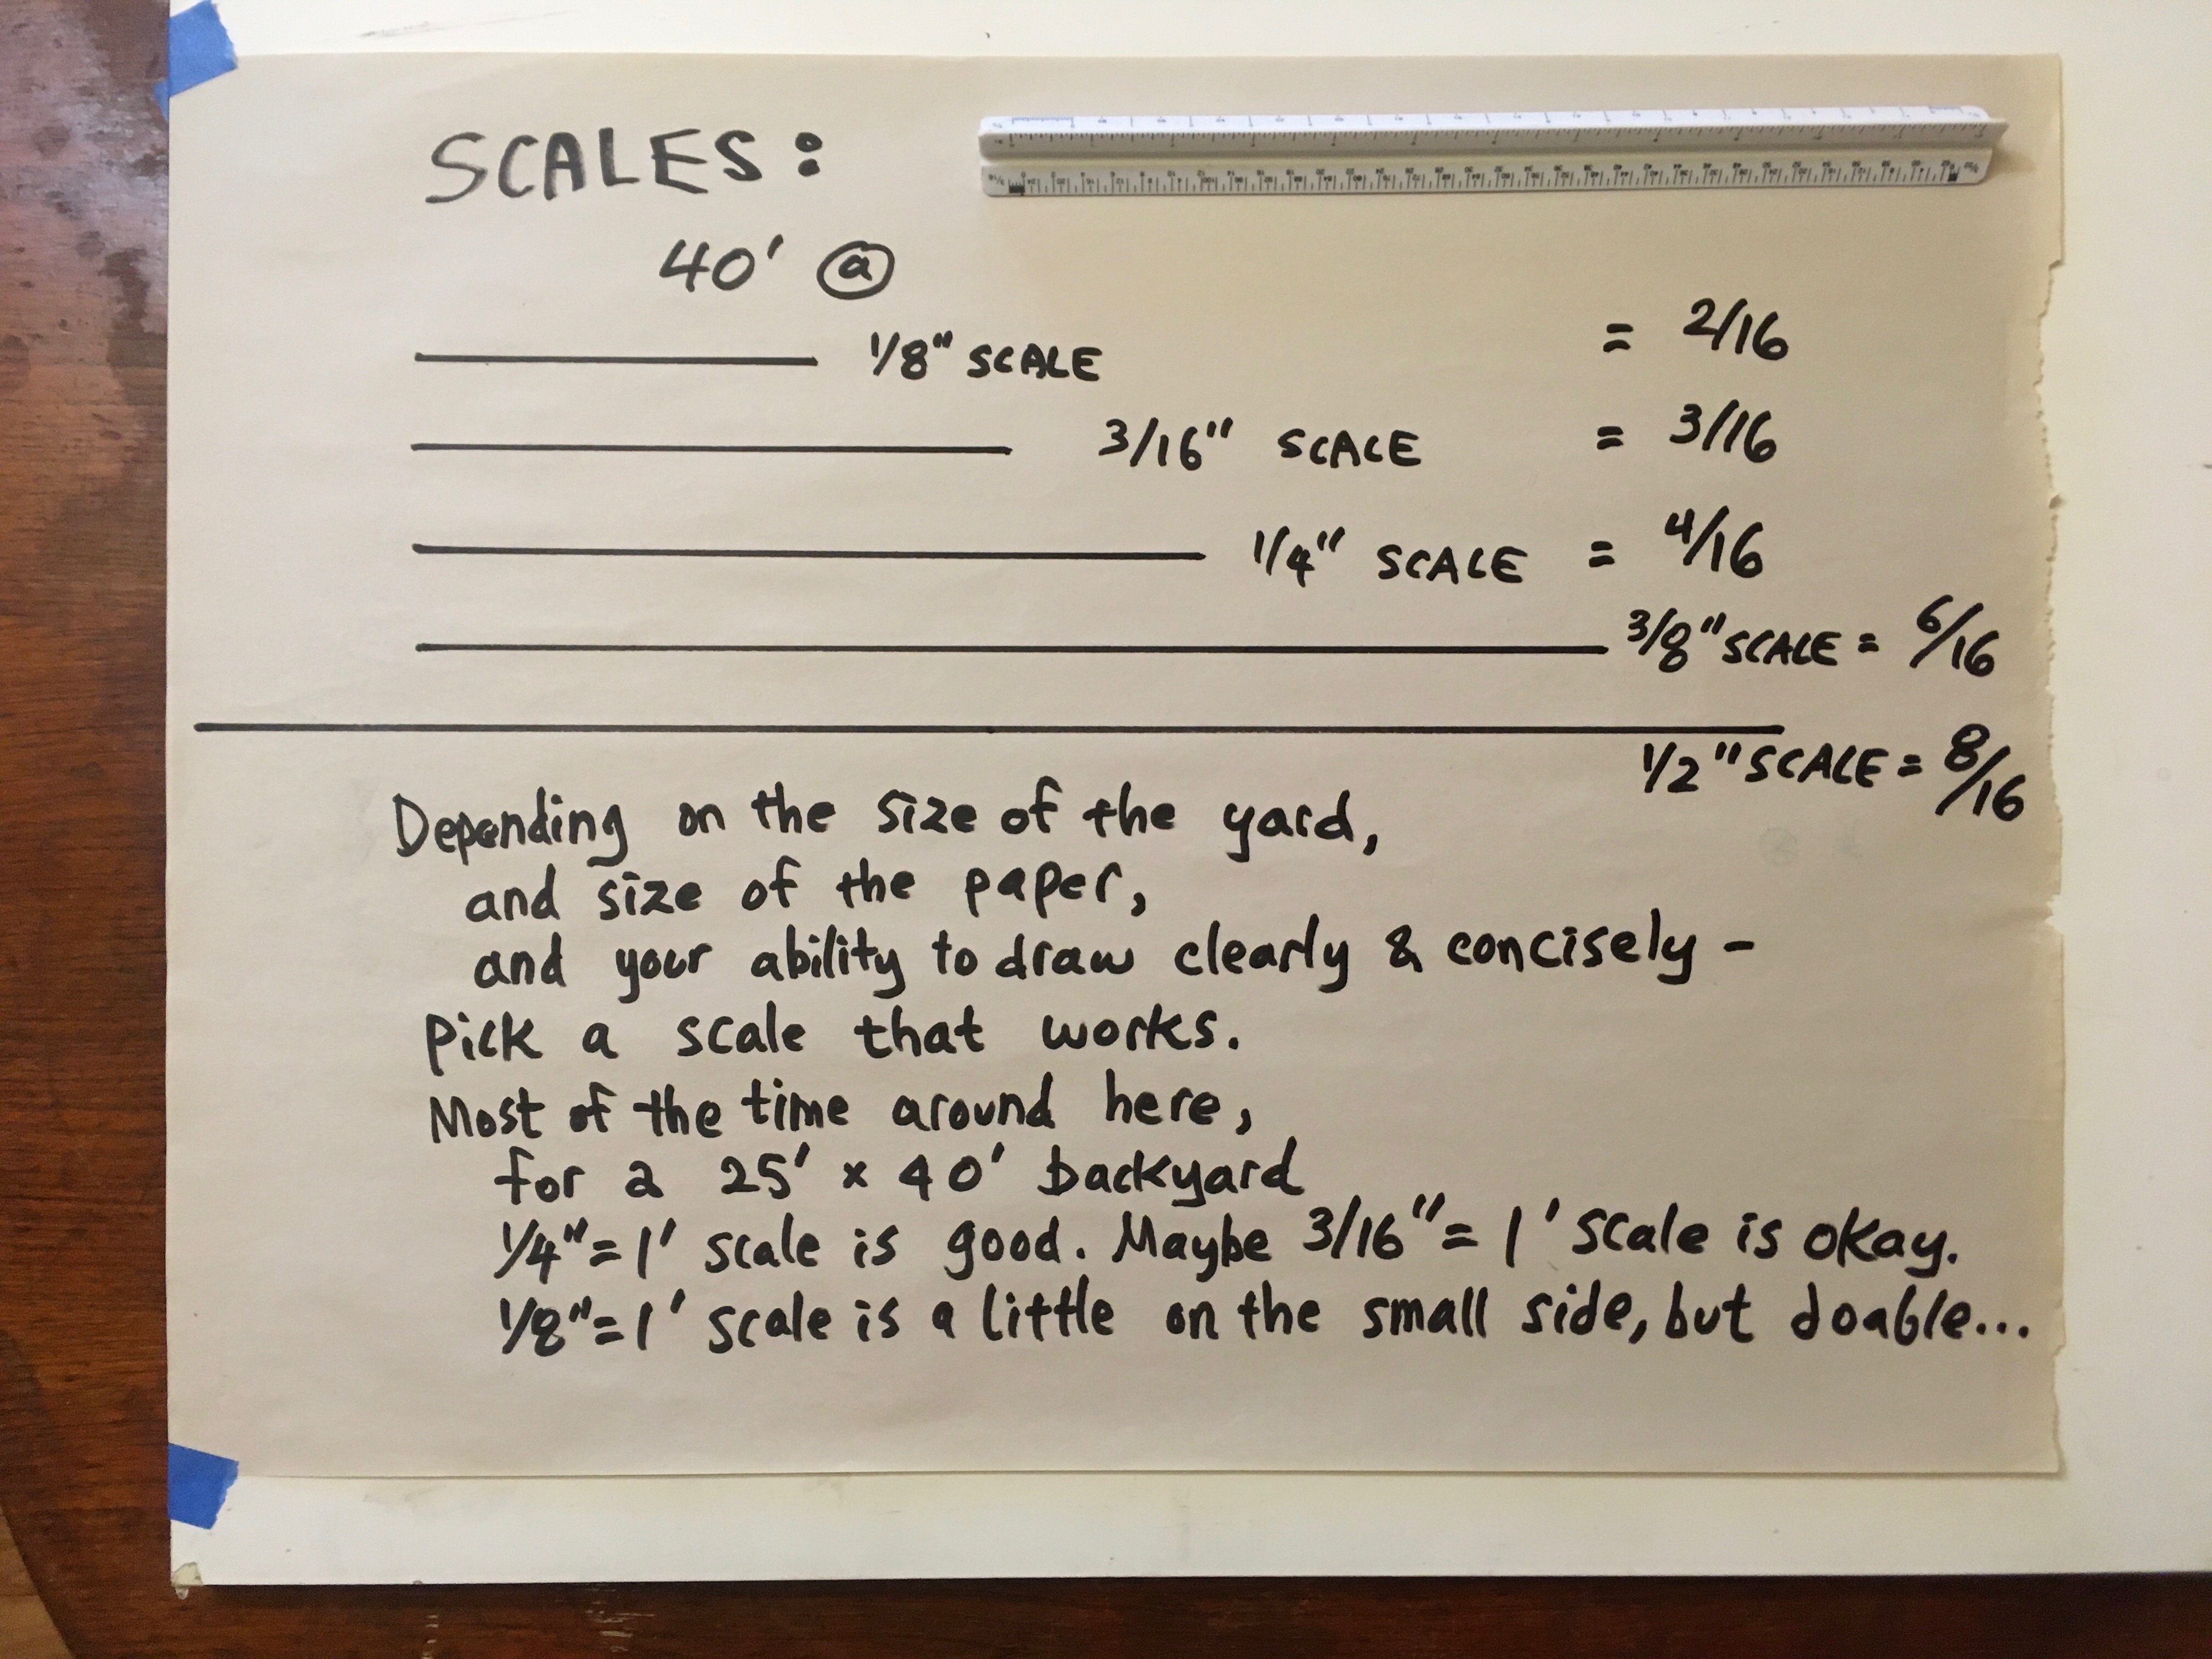 SCALES:
40' @
1/8" SCALE = 2/16
3/16" SCALE = 3/16
1/4" SCALE = 4/16
3/8" SCALE = 6/16
1/2" SCALE = 8/16
Depending on the size of the yard,
and size of the paper,
and your ability to draw clearly & concisely -
Pick a scale that works.
Most of the time around here,
for a 25' x 40' backyard
1/4" = 1' scale is good. Maybe 3/16" = 1' scale is okay.
1/8" = 1' scale is a little on the small side, but doable...